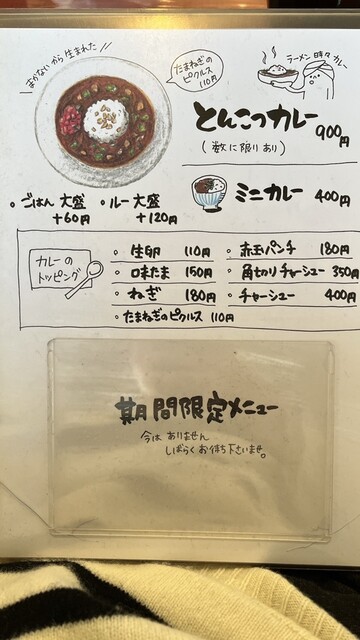 まかないから生まれた
たまねぎの
ピクルス
110円
ラーメン 時々 カレー
とんこつカレー 900円
(数に限りあり)
・ごはん 大盛 +60円
・ルー 大盛 +120円
ミニカレー 400円
カレーの
トッピング
・生卵 110円
・赤玉パンチ 180円
・味たま 150円
・角切りチャーシュー 350円
・ねぎ 180円
・チャーシュー 400円
・たまねぎのピクルス 110円
期間限定メニュー
今は ありません
しばらく お待ち下さいませ。